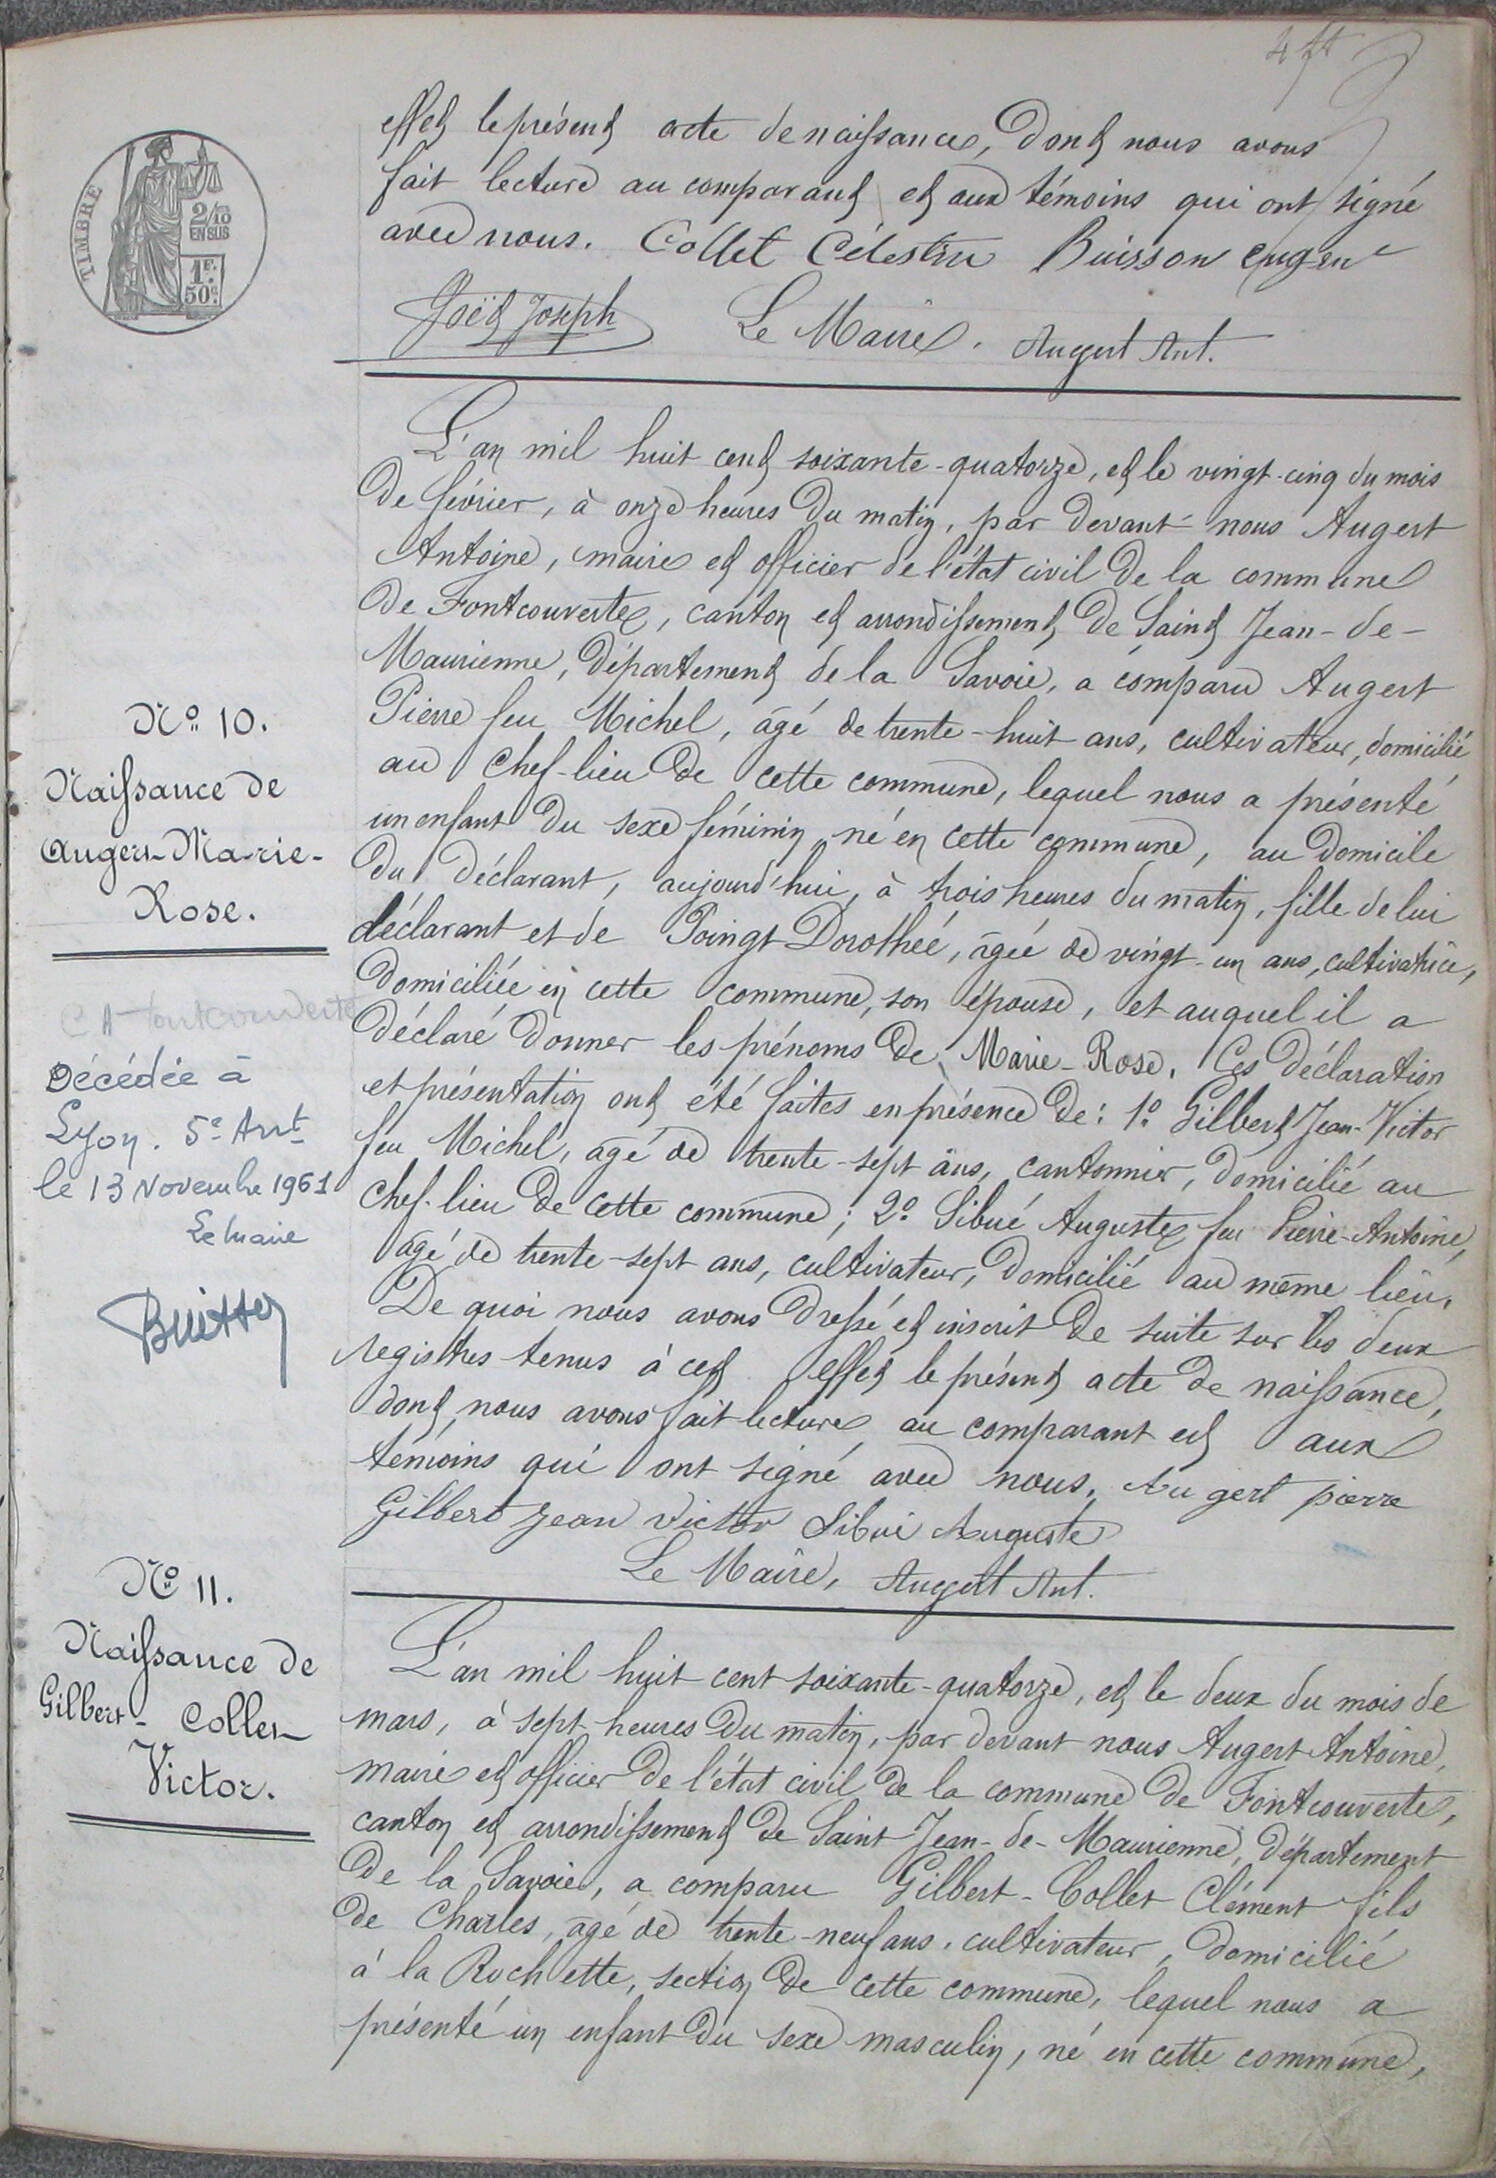 4 ft
TIMBRE
2/10
EN SUS
1F.
50c
effet le présent acte de naissance, dont nous avons
fait lecture au comparant et aux témoins qui ont signé
avec nous. Collet Célestin Buisson Eugene
Joët Joseph Le Maire. Augert Ant.
L'an mil huit cent soixante-quatorze, et le vingt-cinq du mois
de février, à onze heures du matin, par devant nous Augert
Antoine, maire et officier de l'état civil de la commune
de Fontcouverte, canton et arrondissement de Saint Jean-de-
Maurienne, département de la Savoie, a comparu Augert
Pierre feu Michel, âgé de trente-huit ans, cultivateur, domicilié
au Chef-lieu de cette commune, lequel nous a présenté
un enfant du sexe féminin né en cette commune, au domicile
du déclarant, aujourd'hui, à trois heures du matin, fille de lui
déclarant et de Poingt Dorothée, âgée de vingt-un ans, cultivatrice,
domiciliée en cette commune, son épouse, et auquel il a
déclaré donner les prénoms de Marie-Rose. Ces déclaration
et présentation ont été faites en présence de: 1° Gilbert Jean-Victor
feu Michel, âgé de trente-sept ans, cantonnier, domicilié au
Chef-lieu de cette commune; 2° Sibué Auguste feu Pierre-Antoine,
âgé de trente-sept ans, cultivateur, domicilié au même lieu.
De quoi nous avons dressé et inscrit de suite sur les deux
registres tenus à cet effet le présent acte de naissance,
dont nous avons fait lecture au comparant et aux
témoins qui ont signé avec nous. Augert pierre
Gilbert Jean Victor Sibué Auguste
Le Maire, Augert Ant.
N° 10.
Naissance de
Augert Marie-
Rose.
Fontcouverte
Décédée à
Lyon. 5e Arrt
le 13 Novembre 1961
Le Maire
N° 11.
Naissance de
Gilbert-Collet
Victor.
L'an mil huit cent soixante-quatorze, et le deux du mois de
mars, à sept heures du matin, par devant nous Augert Antoine,
maire et officier de l'état civil de la commune de Fontcouverte,
canton et arrondissement de Saint Jean-de-Maurienne, département
de la Savoie, a comparu Gilbert-Collet Clément fils
de Charles, âgé de trente-neuf ans, cultivateur, domicilié
à la Rochette, section de cette commune, lequel nous a
présenté un enfant du sexe masculin, né en cette commune,